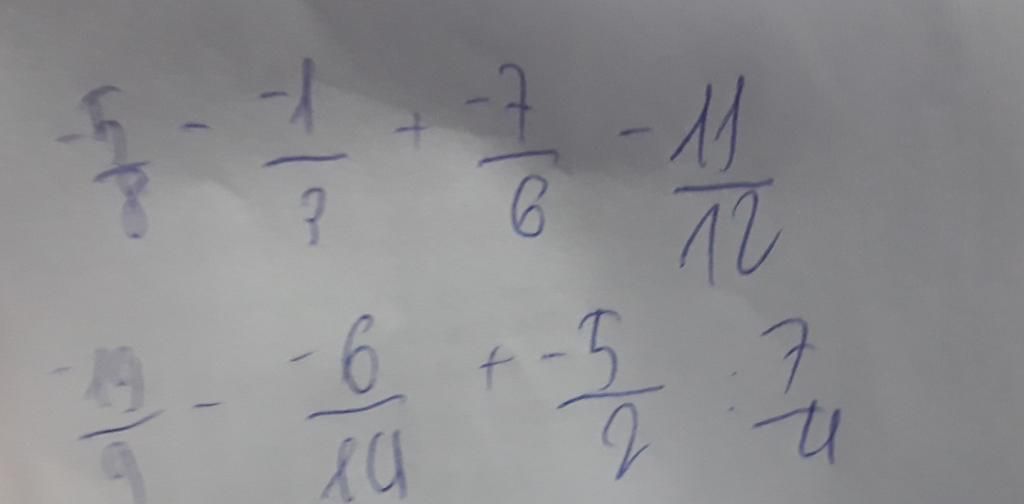 -5/8 - -1/3 + -7/6 - 11/12
-19/9 - -6/14 + -5/2 : 7/4